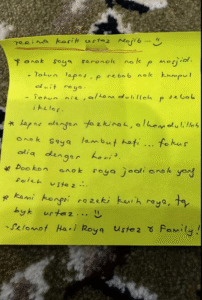 Terima kasih ustaz Najib...
* anak saya seronok nak p masjid.
- Tahun lepas, p sebab nak kumpul
duit raya.
- Tahun ni, alhamdulillah p sebab
ikhlas.
* Lepas dengar tazkirah, alhamdulillah
anak saya lembut hati... fokus
dia dengar hari².
* Doakan anak saya jadi anak yang
soleh ustaz..
* Kami kongsi rezeki kuih raya, tq
byk ustaz...
- Selamat Hari Raya Ustaz & Family!